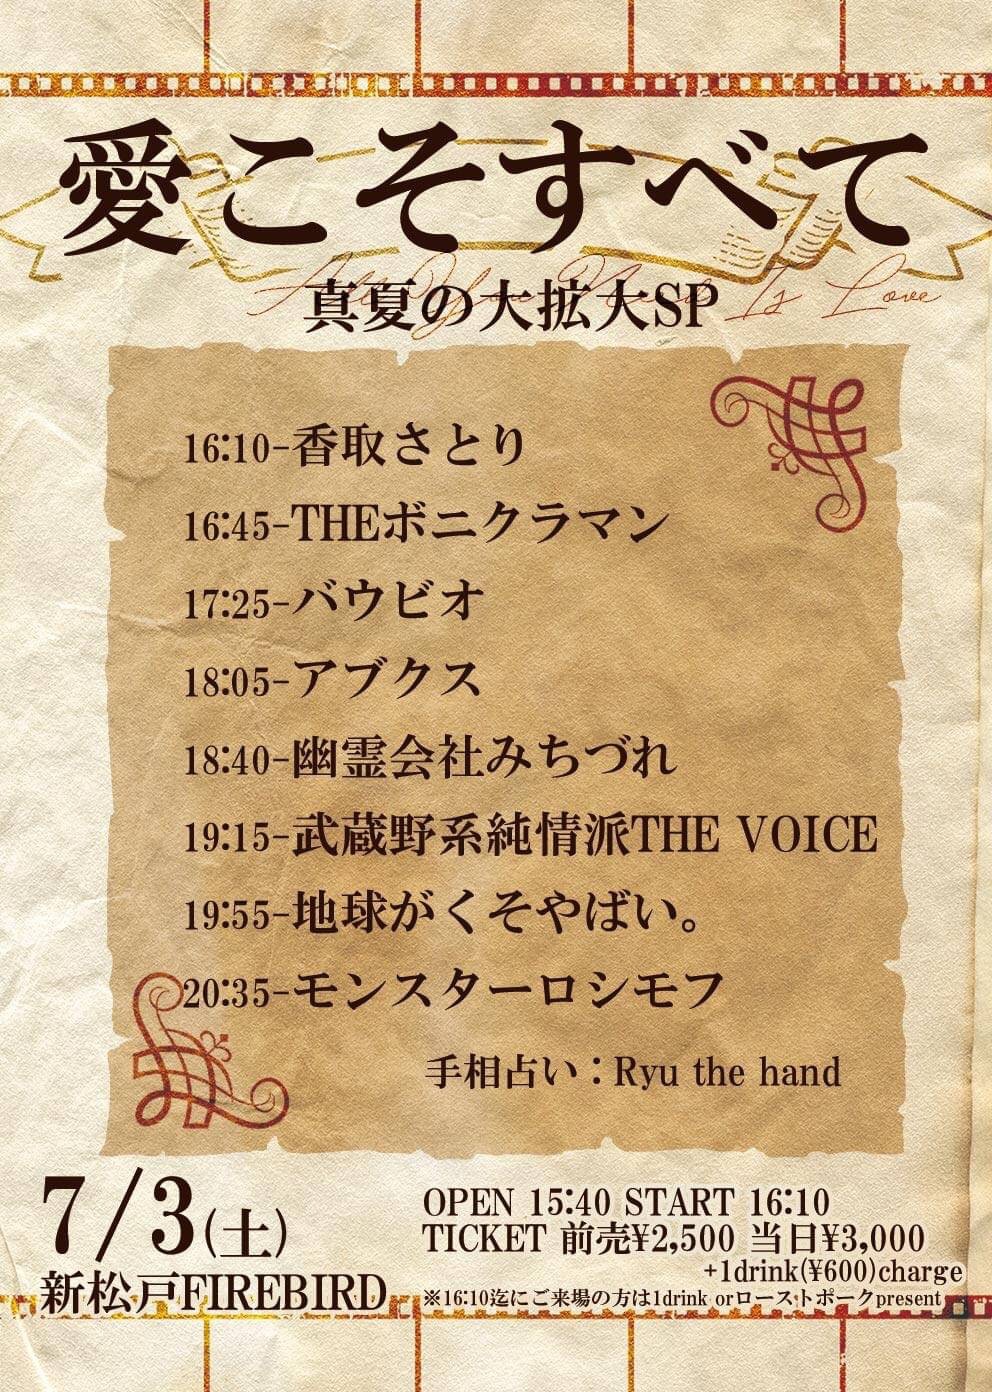 愛こそすべて
All You Need Is Love
真夏の大拡大SP
16:10-香取さとり
16:45-THEボニクラマン
17:25-バウビオ
18:05-アブクス
18:40-幽霊会社みちづれ
19:15-武蔵野系純情派THE VOICE
19:55-地球がくそやばい。
20:35-モンスターロシモフ
手相占い:Ryu the hand
7/3(土)
新松戸FIREBIRD
OPEN 15:40 START 16:10
TICKET 前売¥2,500 当日¥3,000
+1drink(¥600)charge
※16:10迄にご来場の方は1drink orローストポークpresent